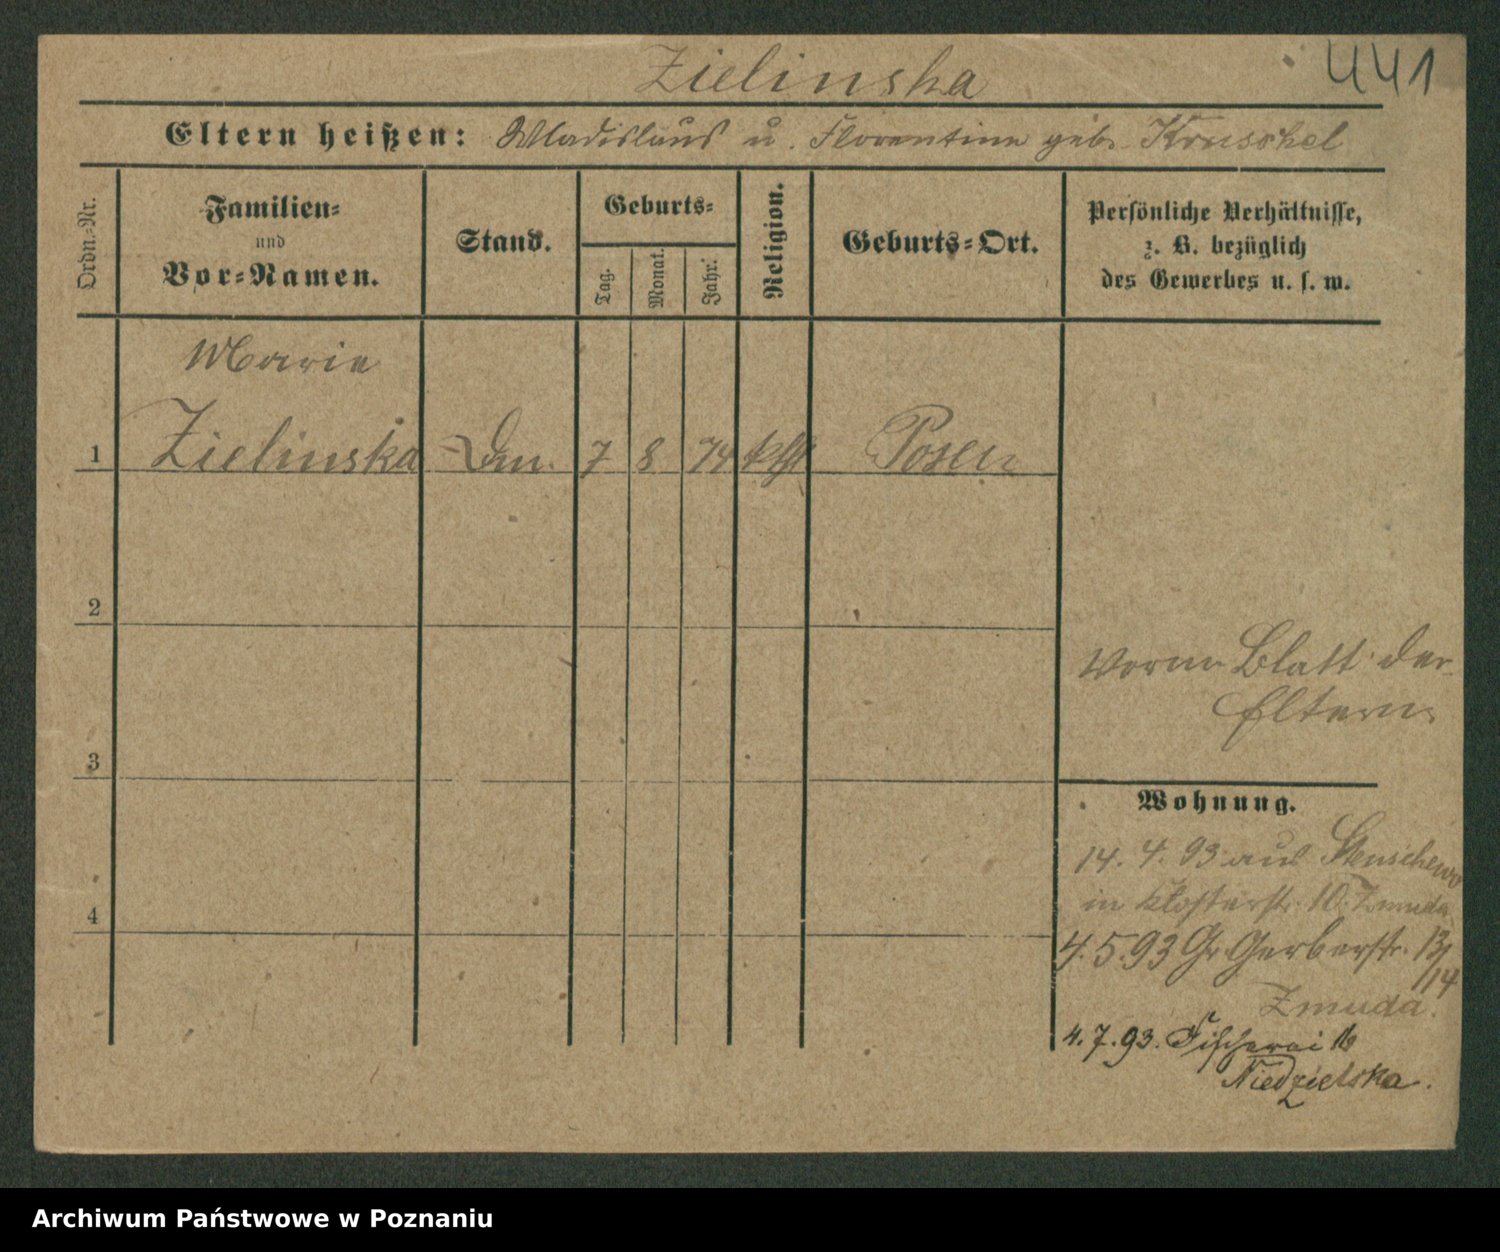 Zielinska
441
Eltern heißen: Wladislaus u. Florentine geb. Kruschel
Ordn.-Nr.
Familien- und Vor-Namen.
Stand.
Geburts-
Tag.
Monat.
Jahr.
Religion.
Geburts-Ort.
Persönliche Verhältnisse,
z. B. bezüglich
des Gewerbes u. s. w.
Marie
1 Zielinska 7 8 74 kth Posen
2
Vorm Blatt der
Eltern
3
Wohnung.
14. 4. 93 aus Stenschewo
in Klosterstr. 10. Zmuda
4
4. 5. 93 Gr. Gerberstr. 13/14
Zmuda.
4. 7. 93. Fischerei 16
Niedzielska.
Archiwum Państwowe w Poznaniu